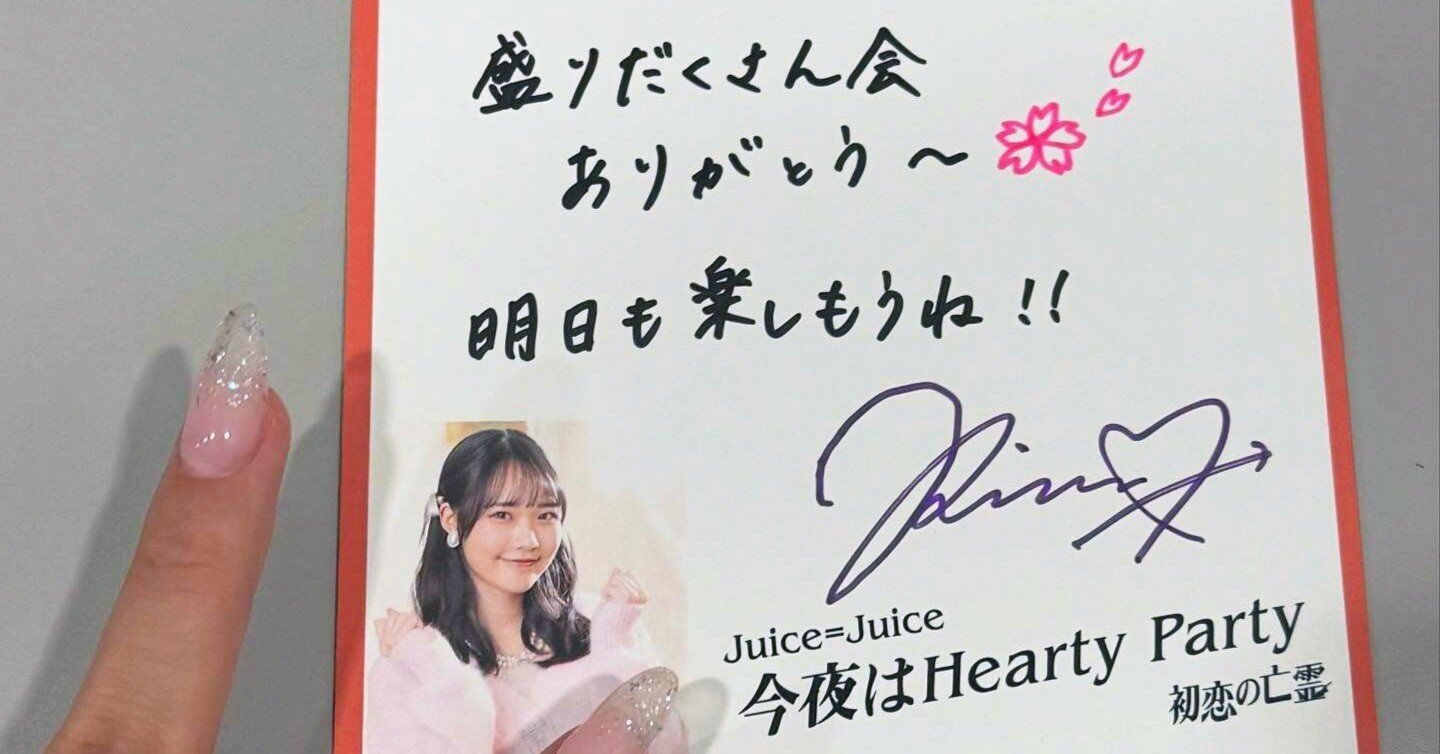 盛りだくさん会
ありがとう～
明日も楽しもうね!!
Juice=Juice
今夜はHearty Party
初恋の亡霊